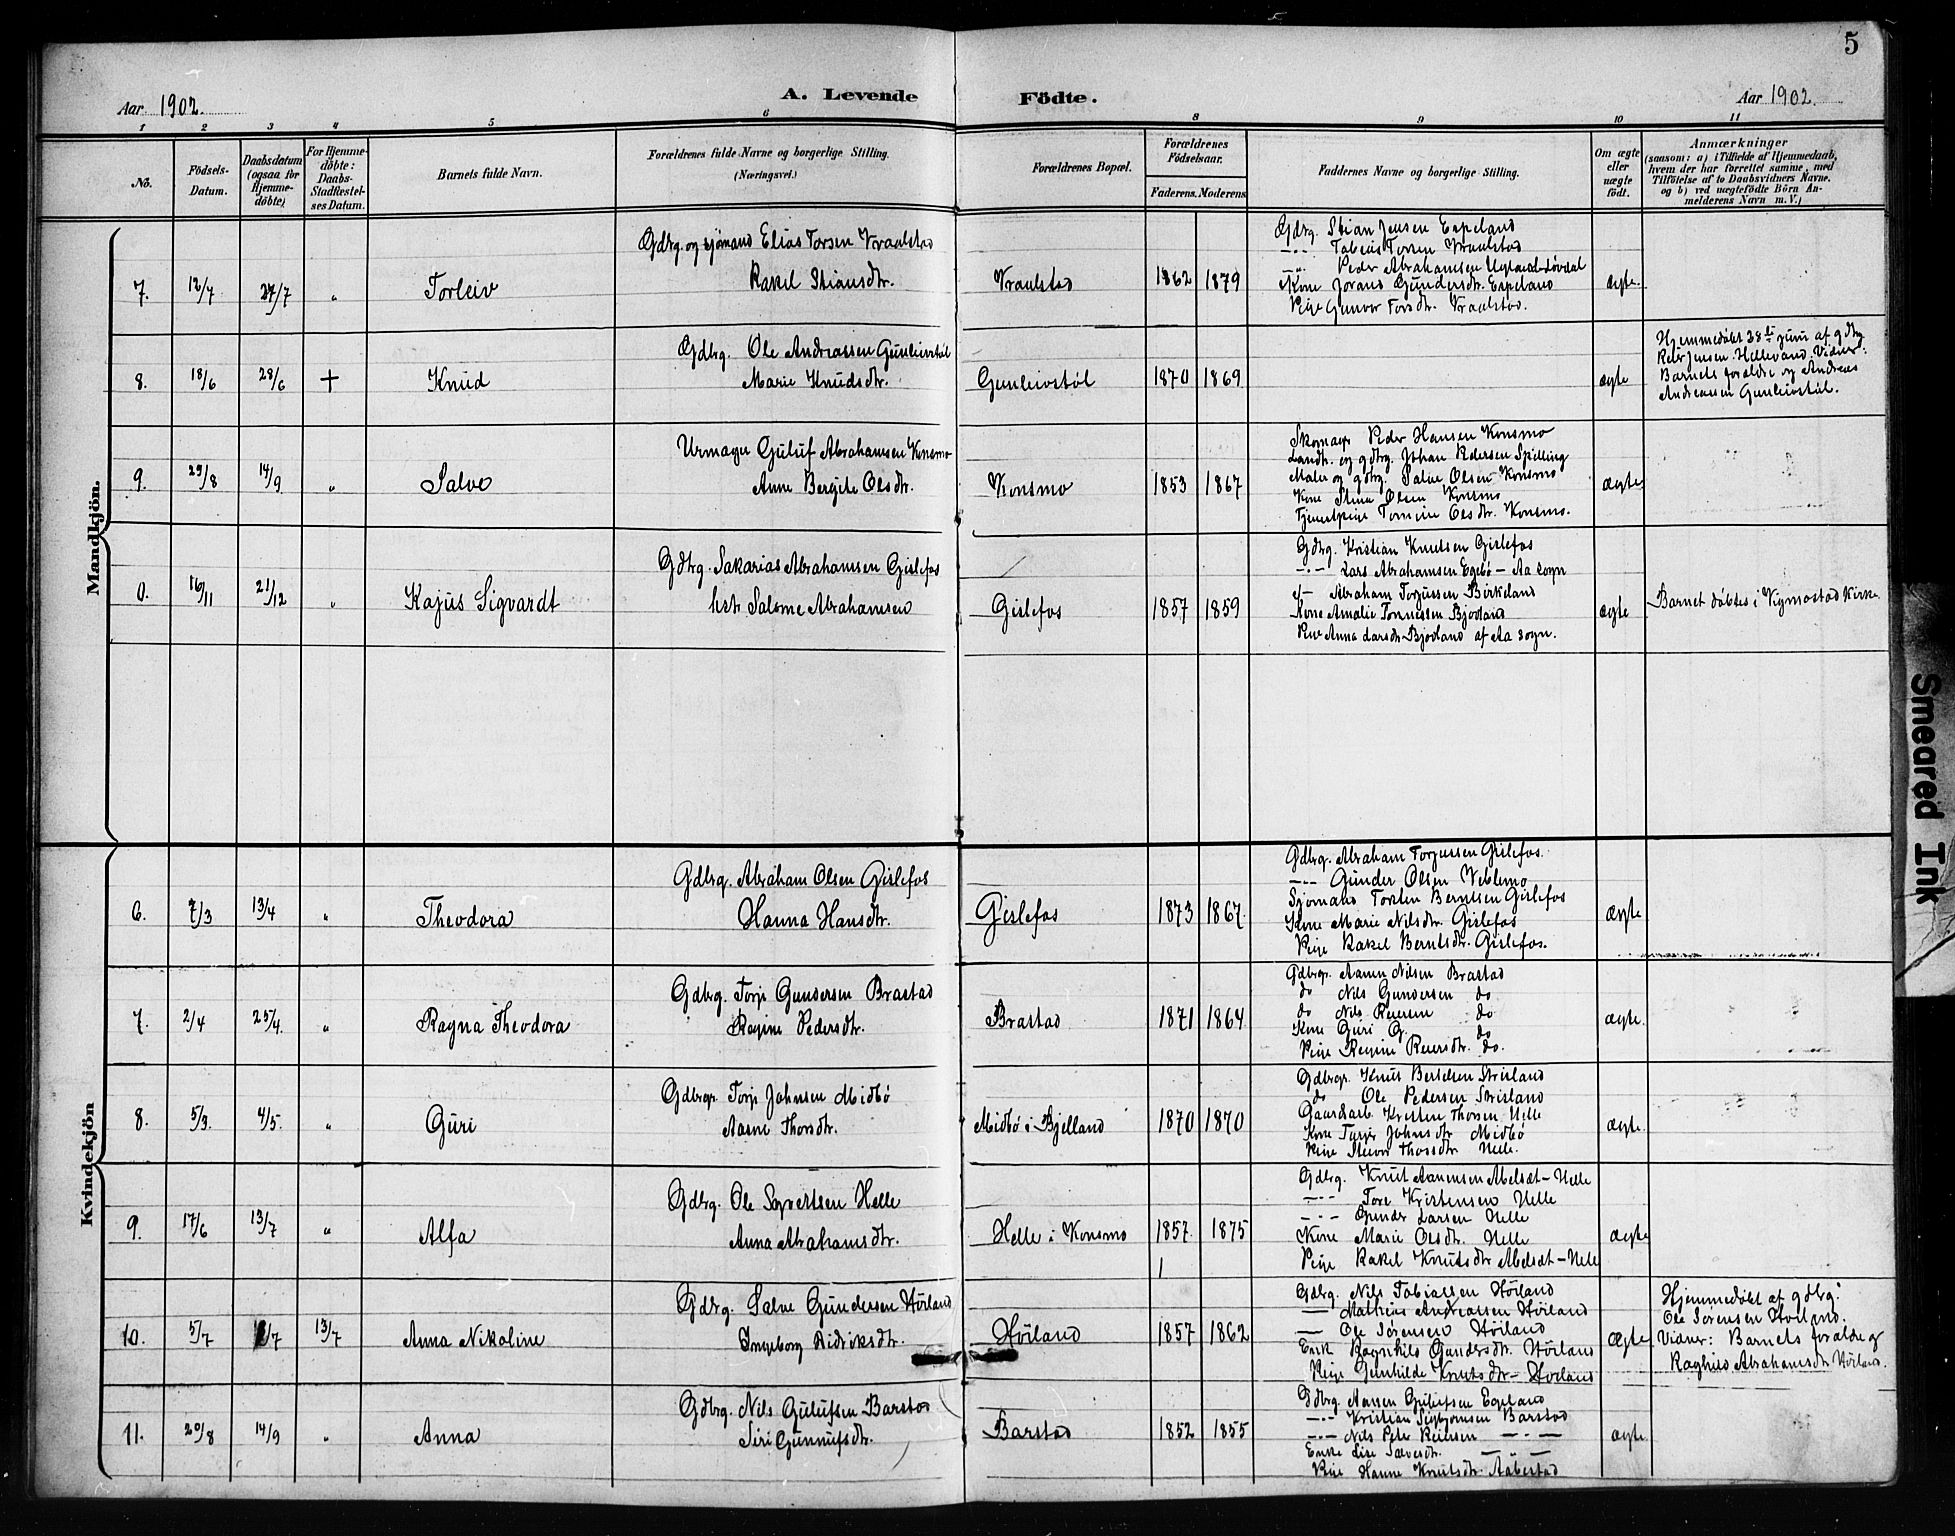 5
Aar 1902.
A. Levende Födte.
Aar 1902.
1 2 3 4 5 6 8 9 10 11
No.
Födsels-
Datum.
Daabsdatum
(ogsaa for
Hjemme-
döbte)
For Hjemme-
döbte:
Daabs-
Stadfæstel-
ses Datum.
Barnets fulde Navn.
Forældrenes fulde Navne og borgerlige Stilling.
(Næringsvei.)
Forældrenes Bopæl.
Forældrenes
Födselsaar.
Faderens. Moderens
Faddernes Navne og borgerlige Stilling.
Om ægte
eller
uægte
födt.
Anmærkninger
(saasom: a) i Tilfælde af Hjemmedaab,
hvem der har forrettet samme, med
Tilföielse af to Daabsvidners Navne.
og b) ved uægtefödte Börn An-
melderens Navn m. V.)
Mandkjön.
7. 12/7 27/7 " Torleiv
Gdbrg. og sjømand Elias Torsen Vraalstad
Rakel Stiansdtr.
Vraalstad 1862 1879
Gdbrg. Stian Jensen Espeland
-"- Tobias Torsen Vraalstad
-"- Peder Abrahamsen
Kone Jorand Gundersdtr. Espeland
Pige Gunvor Torsdtr. Vraalstad.
ægte.
8. 18/6 28/6 + Knud
Gdbrg. Ole Andreassen Gunleivstøl
Marie Knudsdtr.
Gunleivstøl 1870 1869
ægte
Hjemmedøbt 28de juni af gdbrg
Peder Jensen Hellevand. Vidner:
Barnets forældre og Andreas
Andreassen Gunleivstøl.
9. 29/8 14/9 " Salve
Urmager Guluf Abrahamsen Konsmo
Anne Bergite Olsdtr.
Konsmo 1853 1867
Skomager Peder Hansen Konsmo
Landh. og gdbrg. Johan Pedersen Spilling
Maler og gdbrg. Salve Olsen Konsmo
Kone Stina Olsen Konsmo
Tjenestpige Tomine Olsdtr. Konsmo.
ægte
0. 16/11 21/12 " Kajus Sigvardt
Gdbrg. Sakarias Abrahamsen Gislefos
hstr Salome Abrahamsen
Gislefos 1857 1859
Gdbrg. Kristian Knutsen Gislefos
-"- Lars Abrahamsen Egebø - Aa sogn
-"- Abraham Torjussen Birkeland
Kone Amalie Tønnessen Bjovland
Pige Anna Larsdtr Bjovland af Aa sogn.
ægte
Barnet døbtes i Vigmostad Kirke.
Kvindekjön
6. 7/3 13/4 " Theodora
Gdbrg. Abraham Olsen Gislefos
Hanna Hansdtr.
Gislefos 1873 1867.
Gdbrg. Abraham Torjussen Gislefos.
-"- Gunder Olsen Veblemo
Sjømand Torsten Berntsen Gislefos
Kone Marie Nilsdtr. Gislefos
Pige Rakel Berntsdtr. Gislefos.
ægte
7. 2/4 25/4. " Ragna Theodora
Gdbrg. Torje Gundersen Brastad
Regine Pedersdtr.
Brastad 1871 1864
Gdbrgr. Aanen Nilsen Brastad
do Nils Gundersen do
do Nils Reiersen do
Kone Guri G. do
Pige Regine Reiersdtr. do.
ægte.
8. 5/3. 4/5. " Guri
Gdbrgr. Torje Johnsen Midbø
Aasne Thorsdtr.
Midbø i Bjelland 1870 1870
Gdbrgr. Knut Bertelsen Strisland
do Ole Pedersen Strisland
Gaardarb. Kristen Thorsen Helle
Kone Turje Johnsdtr Midbø
Pige Thorsdtr Helle.
ægte.
9. 17/6 13/7 " Alfa
Gdbrg. Ole Syvertsen Helle
Anna Abrahamsdtr.
Helle i Konsmo 1857. 1875
Gdbrg. Knut Aanensen Melsdt-Helle
-"- Tore Kristensen Helle
-"- Gunder Larsen Helle
Kone Marie Olsdtr. Helle
Pige Rakel Knutsdtr Melsdt-Helle
ægte
10. 5/7 /7 13/7 Anna Nikoline
Gdbrg. Salve Gundersen Høiland
Ingeborg Didriksdtr.
Høiland 1857 1862
Gdbrg. Nils Tobiassen Høiland
— Mathias Andreassen Høiland
— Ole Sørensen Høiland
Enke Ragnhild Gundersdtr. Høiland
Pige Gunhilde Knutsdtr - Høiland
ægte
Hjemmedøbt af gdbrg:
Ole Sørensen Høiland.
Vidner: Barnets forældre og
Raghild Abrahamsdtr Høiland.
11. 20/8 14/9 " Anna
Gdbrg. Nils Gulufsen Barstad
Siri Gunnufsdtr.
Barstad 1852 1855
Gdbrg. Aanen Gulufsen Egeland
-"- Kristian Sigbjørnsen Barstad
-"- Nils Peter Reiersen -"-
Enke Lise Salvesdtr. -"-
Pige Hanne Knutsdtr. Aabestad
ægte
Smeared Ink